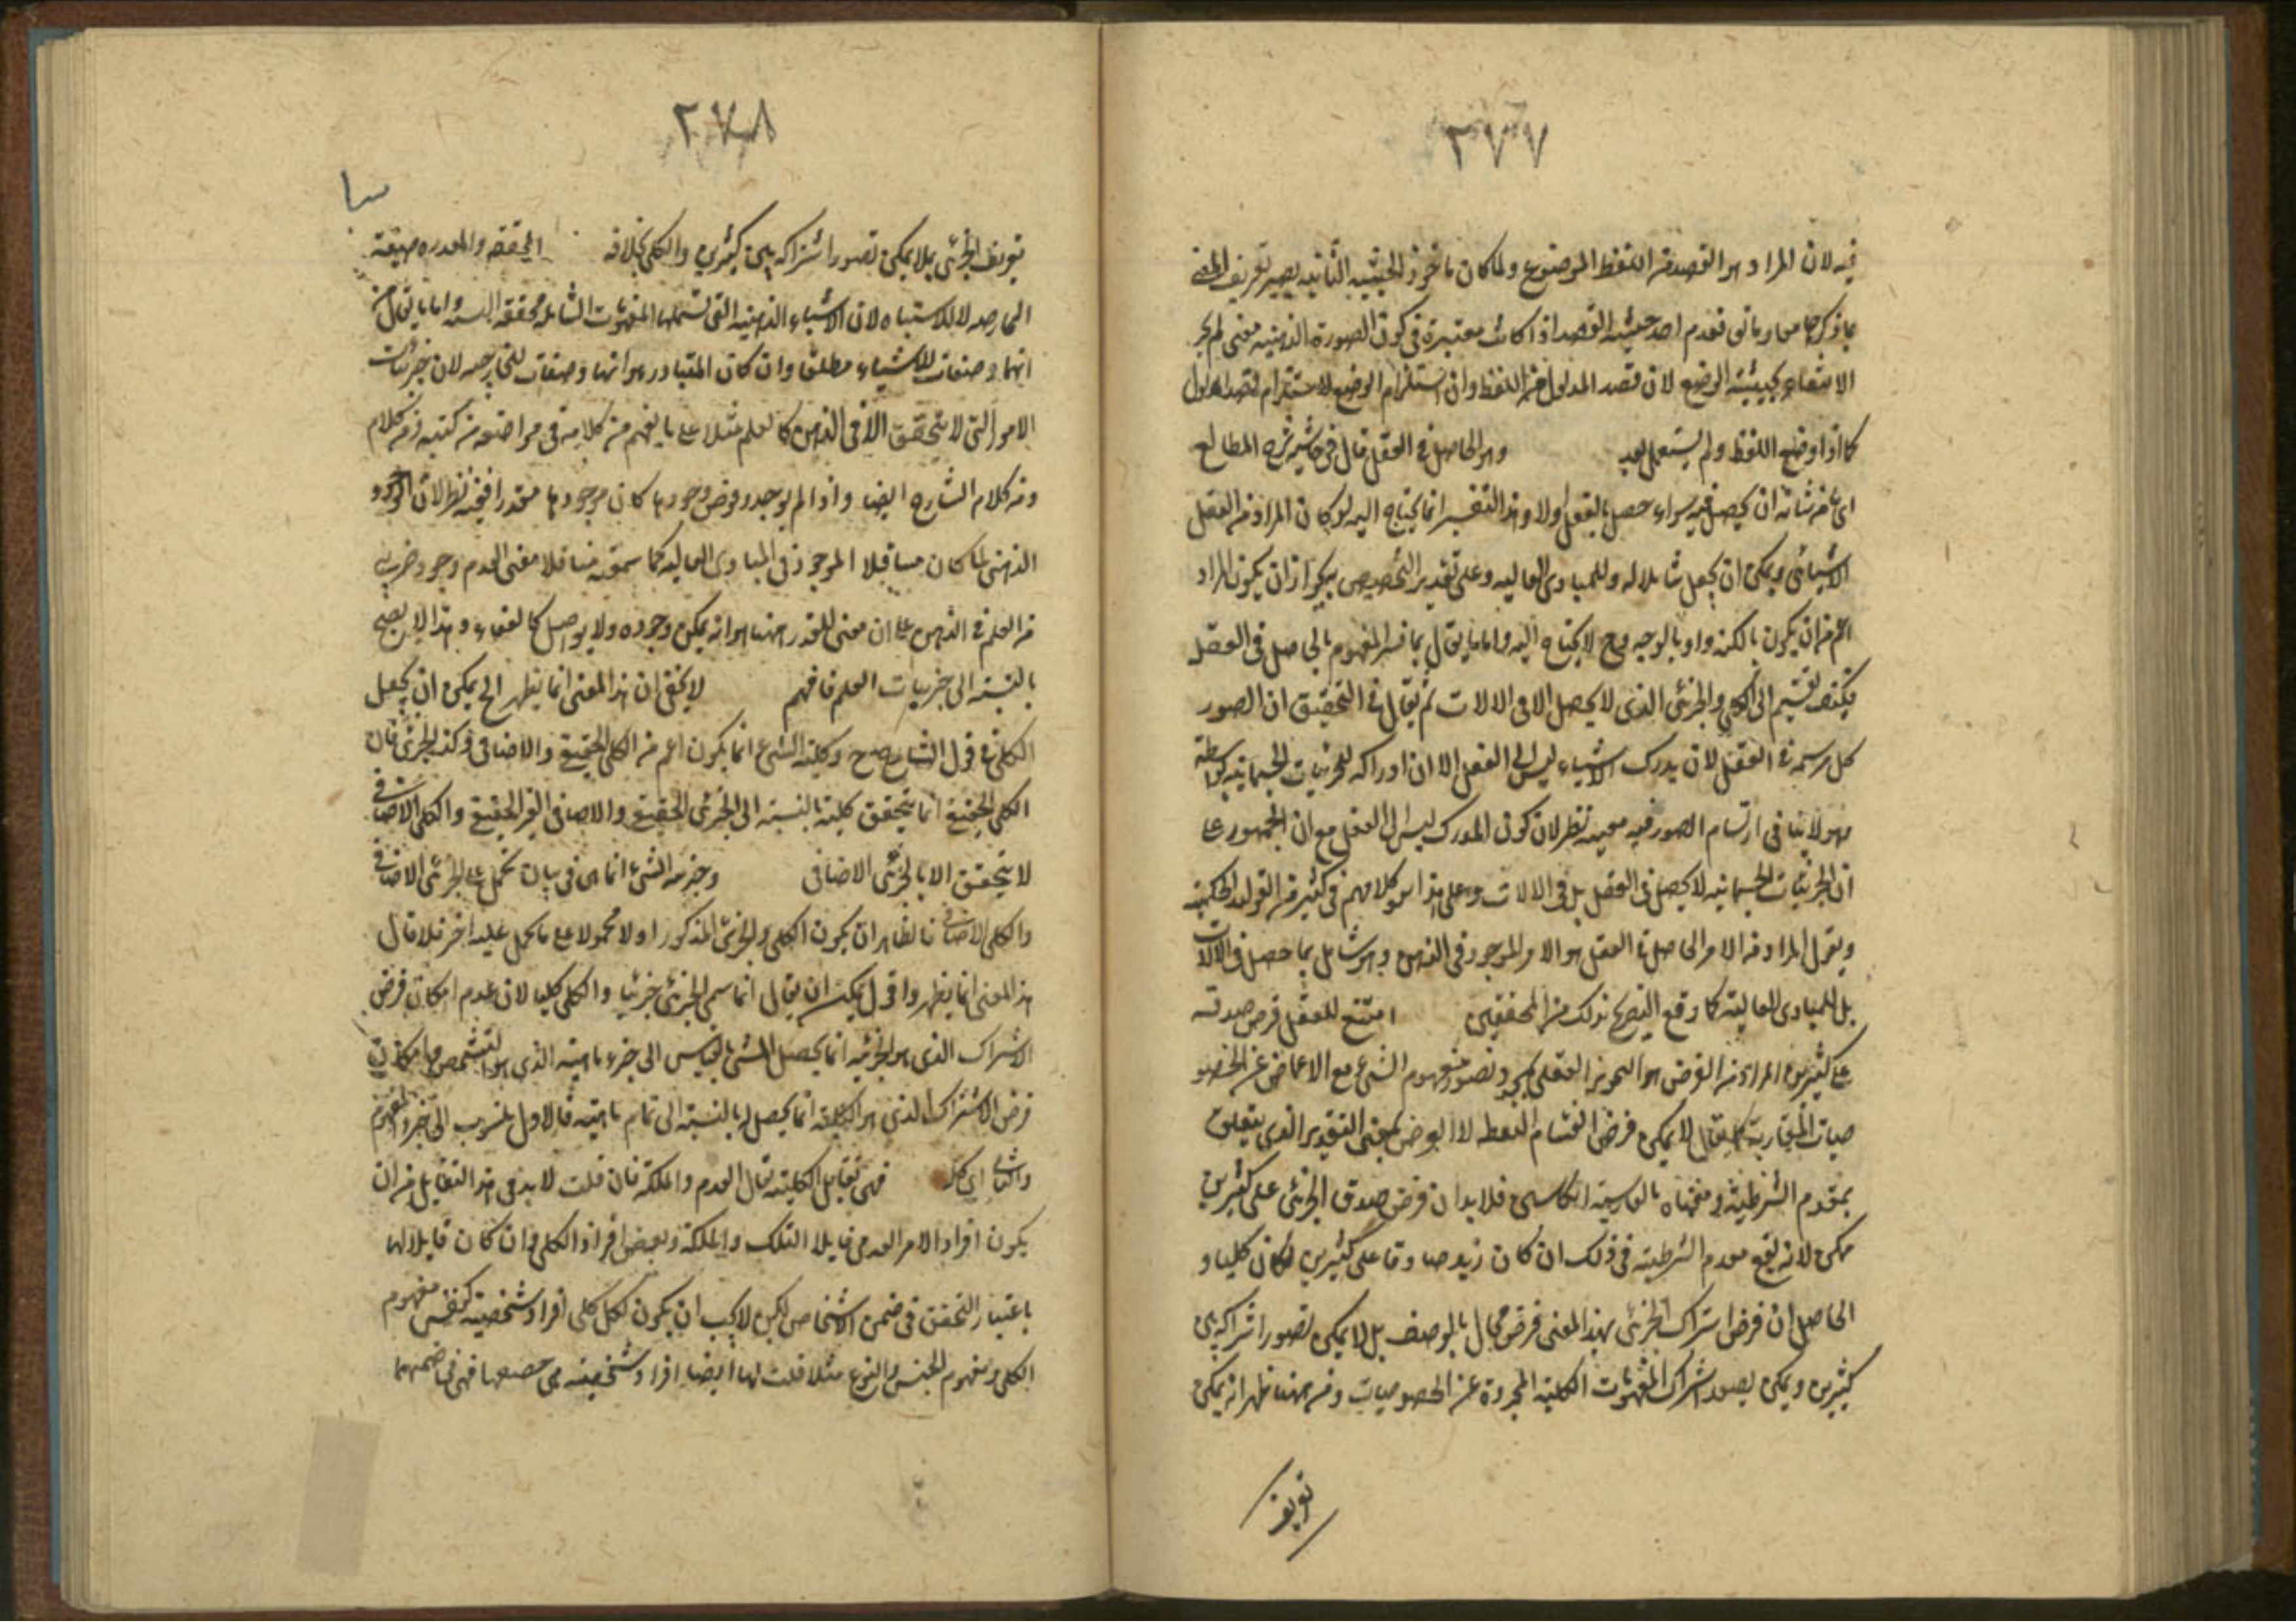 ٢٧٧
فيه لان المراد هو القصد من اللفظ الموضوع ولما كان ماخوذ الحيثية الثانية يصير تعريف المعنى
الانتفاء بحيثية الوضع لان قصد المدلول من اللفظ وان استلزم الوضع لاستلزام قصد المدلول
كما اذا وضع اللفظ ولم يستعمل بعد وهو الحاصل في العقل قال في حاشية شرح المطالع
اي من شانه ان يحصل فيه سواء حصل بالفعل اولا وهذا التفسير انما يحتاج اليه لو كان المراد من العقل
الانساني ويمكن ان يجعل شاملا له وللمبادى العاليه وعلى تقدير التخصيص يجوز ان يكون المراد
اعم من ان يكون بالكنه او بالوجه وح لا يحتاج اليه واما ما يقال بما فسر المفهوم بالحاصل في العقل
فكيف تقسيمه الى الكلي والجزئي الذى لا يحصل الا في الالات ثم يقال في التحقيق ان الصور
كل مرتسمة في العقل لان يدرك الاشياء ليس الا العقل الا ان ادراكه للجزئيات الجسمانيه بواسطة
وهو لا ينافى ارتسام الصور فيه نظر لان كون المدرك ليس الا العقل مع ان الجمهور على
ان الجزئيات الجسمانيه لا يحصل في العقل بل في الالات وعلى هذا هو كلامهم في كثير من القواعد الحكمية
ويقول المراد من الامر الحاصل في العقل هو الامر الموجود في الذهن وهو شامل بما حصل في الالات
بل للمبادى العالية كما وقع التصريح بذلك من المحققين امتنع للعقل فرض صدقه
على كثيرين المراد من الفرض هو التجويز العقلى بمجرد تصور مفهوم الشئ مع الاغماض عن الخصو
صيات فرض انقسام النقطه لا الفرض بمعنى التقدير الذى يتعلق
بمقدم الشرطية فلا بد ان فرض صدق الجزئى على كثيرين
ممكن لانه يقع مقدم الشرطية في قولك ان كان زيد صادقا على كثيرين لكان كليا و
الحاصل ان فرض اشتراك الجزئى بهذا المعنى فرض محال بالوصف بل لا يمكن تصور اشتراكه بين
كثيرين ويمكن تصور اشتراك المفهومات الكلية المجردة عن الخصوصيات ومن ههنا ظهر انه يمكن
تعريف
٢٧٨
تعريف الجزئى بلا يمكن تصور اشتراكه بين كثيرين والكلي بخلافه المحققه والمقدره صيغة
الخارجيه لا للاشتباه لان الاشياء الذهنيه التى تشملها المفهومات الشاملة محققة البتة واما ما يقال من
انها وصفات للاشياء مطلقا وان كان المتبادر هو انها وصفات للخارجيه لان جزئيات
الامور التى لا تتحقق الا في الذهن كالعلم مثلا على ما يفهم من كلامه في مواضع من كتبه ومن كلام
ومن كلام الشارح ايضا واذا لم يوجد وفرض وجودها كان موجودها مقدرا ففيه نظر لان الوجود
الذهنى لما كان مساقلا الموجود في المبادى العاليه كما سمعته منا فلا معنى لعدم وجود جزئى
من العلم في الذهن على ان معنى المقدر ههنا هو انه يمكن وجوده ولا يوجد اصل كالعنقاء وهذا لا يصح
بالنسبة الى جزئيات العلم فافهم لا يخفى ان هذا المعنى انما يظهر الخ يمكن ان يجعل
الكلى في قول الشارح وكلية الشئ انما يكون اعم من الكلى الحقيقى والاضافى وكذا الجزئى فان
الكلى الحقيقى انما يتحقق كليته بالنسبة الى الجزئى الحقيقى والاضافى الغير الحقيقى والكلى الاضافى
لا يتحقق الا بالجزئى الاضافى وجزئية الشئ انما هى في بيان تحمل على الجزئى الاضافى
والكلى الاضافى فالظاهر ان يكون الكلى والجزئى المذكور اولا محمولا على ما يحمل عليه اخر فلا قال
هذا المعنى انما يظهر واقول يمكن ان يقال انما سمى الجزئى جزئيا والكلى كليا لان عدم امكان فرض
الاشتراك الذى هو الجزئيه انما يحصل للشئ بالقياس الى جزء ماهيته الذى هو التشخص وامكان
فرض الاشتراك الذى هو الكلية انما يحصل له بالنسبة الى تمام ماهيته فالاول منسوب الى جزء المفهوم
والثانى الى كله فهى تقابل الكلية تقابل العدم والملكة فان قلت لا بد في هذا التقابل من ان
يكون افراد الامر العدمى قابلا لتلك والملكة وبعض افراد الكلى وان كان قابلا لها
باعتبار التحقق في ضمن الاشخاص لكن لا يجب ان يكون لكل كلى افراد شخصية كنفس مفهوم
الكلى ومفهوم الجنس والنوع مثلا قلت لها ايضا افراد شخصيه هى حصصها فهى في ضمنها